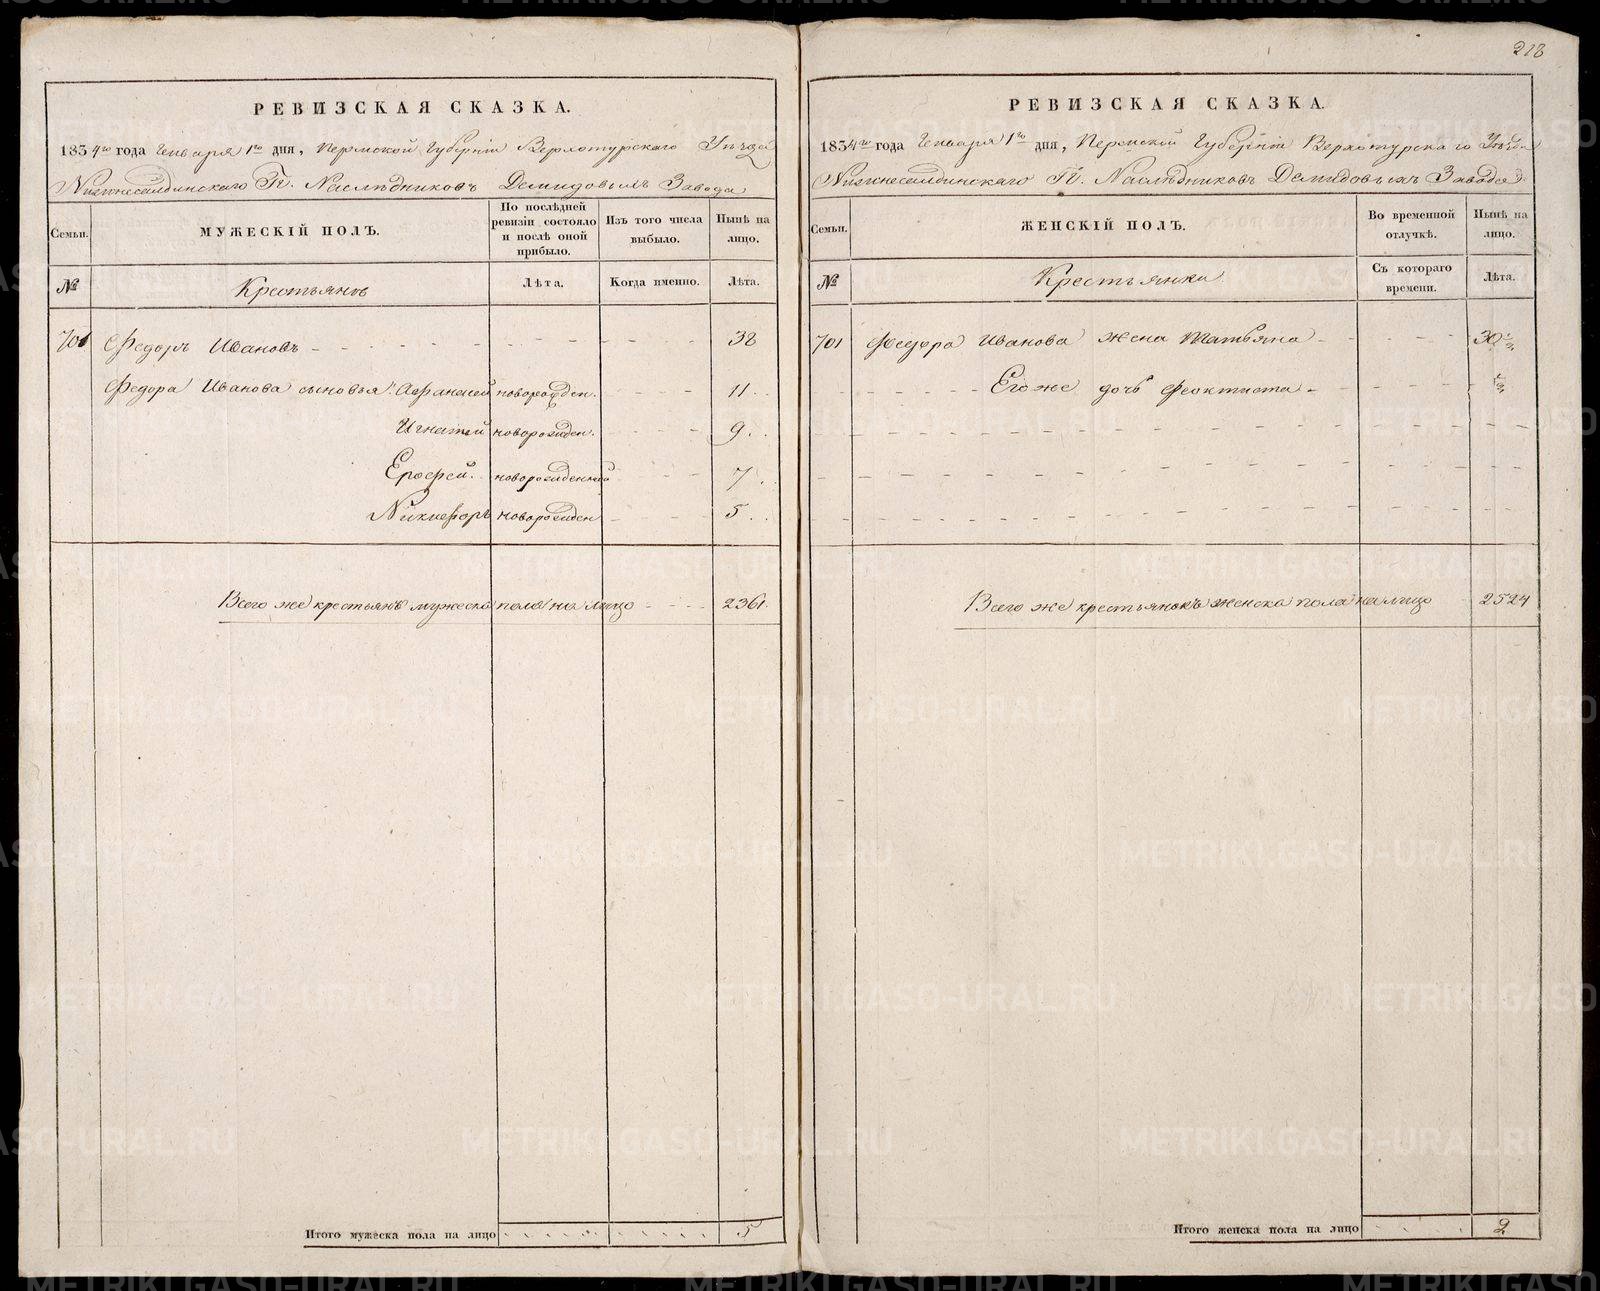 218
РЕВИЗСКАЯ СКАЗКА.
1834го года Генваря 1го дня, Пермской Губерніи Верхотурскаго Уѣзда
Нижнесалдинскаго Г. Г. Наслѣдниковъ Демидовыхъ Завода
Семьи.
МУЖЕСКІЙ ПОЛЪ.
По послѣдней ревизіи состояло и послѣ оной прибыло.
Изъ того числа выбыло.
Нынѣ на лицо.
№
Крестьянъ
Лѣта.
Когда именно.
Лѣта.
701 Федоръ Ивановъ - - - - - 38
Федора Иванова сыновья: Афанасей новорожден. 11
Игнатей новорожден. - - - 9
Ерофей. новорожденной - - 7
Никифоръ новорожден - - - 5
Всего же крестьянъ мужеска пола на лицо - - - 2361
Итого мужеска пола на лицо 5
РЕВИЗСКАЯ СКАЗКА.
1834го года Генваря 1го дня, Пермской Губерніи Верхотурскаго Уѣзда
Нижнесалдинскаго Г. Г. Наслѣдниковъ Демидовыхъ Завода
Семьи.
ЖЕНСКІЙ ПОЛЪ.
Во временной отлучкѣ.
Нынѣ на лицо.
№
Крестьянки
Съ котораго времени.
Лѣта.
701 Федора Иванова жена Татьяна - - - - 30
Его же дочь Феоктиста -
Всего же крестьянокъ женска пола на лицо 2524
Итого женска пола на лицо 2
METRIKI.GASO-URAL.RU